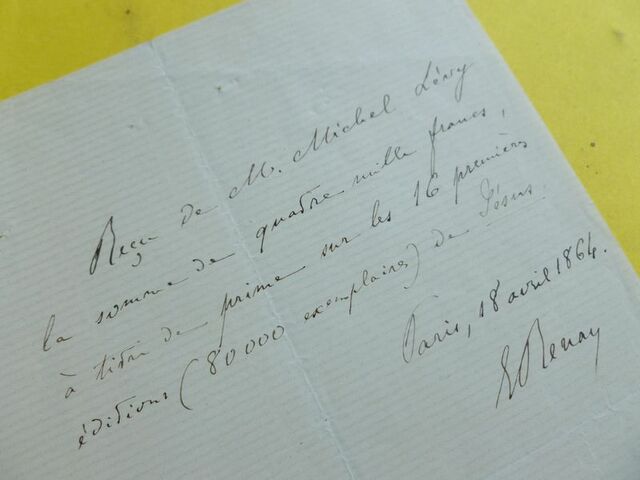 Reçu de M. Michel Lévy
la somme de quatre mille francs,
à titre de prime sur les 16 premières
éditions (80000 exemplaires) de Jésus.
Paris, 18 avril 1864.
E Renan